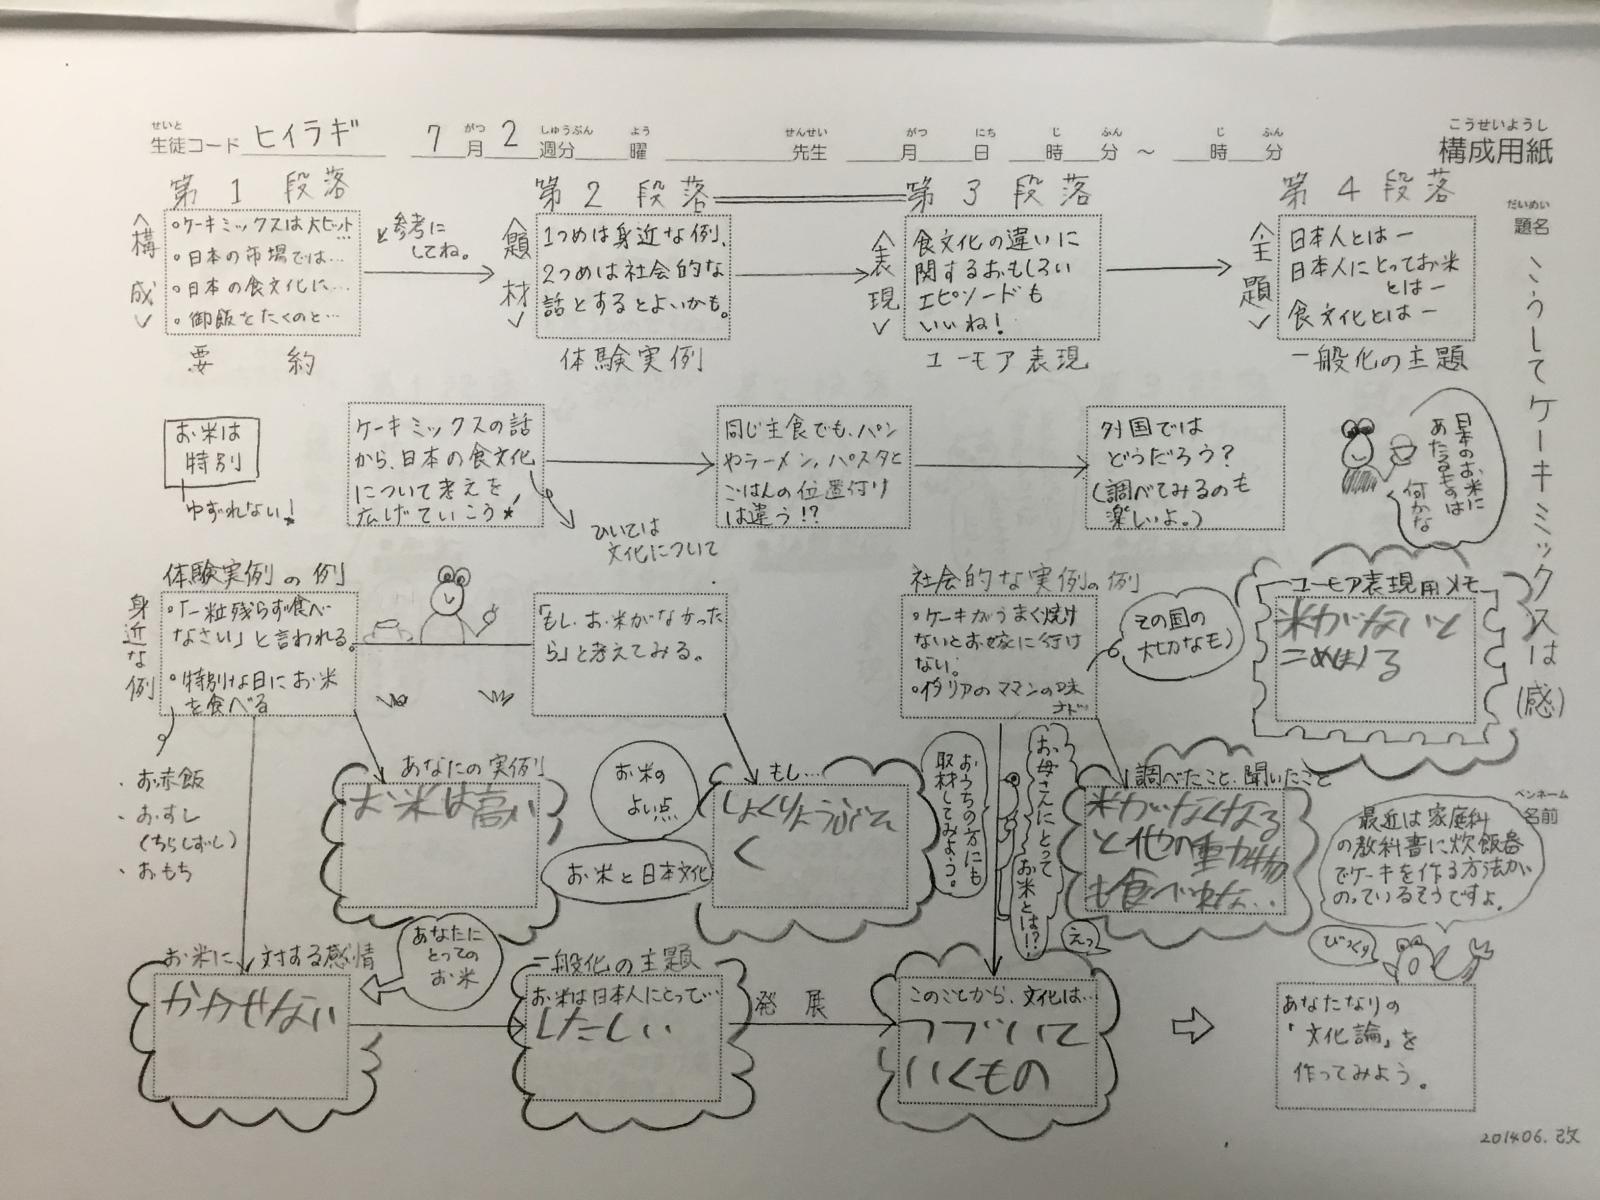 せいと
生徒コード ヒイラギ 7 がつ 月 2 しゅうぶん 週分 よう 曜 せんせい 先生 がつ 月 にち 日 じ 時 ふん 分 ～ じ 時 ふん 分
こうせいようし
構成用紙
だいめい
題名
こうしてケーキミックスは(感)
ペンネーム
名前
第1段落
〈構成〉
・ケーキミックスは大ヒット…
・日本の市場では…
・日本の食文化に…
・御飯をたくのと…
要約
を参考に
してね。
第2段落
〈題材〉
1つめは身近な例、
2つめは社会的な
話とするとよいかも。
体験実例
第3段落
〈表現〉
食文化の違いに
関するおもしろい
エピソードも
いいね！
ユーモア表現
第4段落
〈主題〉
日本人とはー
日本人にとってお米
とはー
食文化とはー
一般化の主題
お米は
特別
ゆずれない！
ケーキミックスの話
から、日本の食文化
について考えを
広げていこう
ひいては
文化について
同じ主食でも、パン
やラーメン、パスタと
ごはんの位置付け
は違う!?
外国では
どうだろう？
(調べてみるのも
楽しいよ。)
日本のお米に
あたるものは
何かな
体験実例の例
身近な例
・「一粒残らず食べ
なさい」と言われる。
・特別な日にお米
を食べる
・お赤飯
・おすし
(ちらしずし)
・おもち
「もし、お米がなかった
ら」と考えてみる。
社会的な実例の例
・ケーキがうまく焼け
ないとお嫁に行け
ない。
・イタリアのママンの味
ナド
その国の
大切なモノ
ユーモア表現用メモ
米がないと
こめまる
あなたの実例
お米は高い
お米の
よい点
お米と日本文化
もし…
しょくりょうがへ
く
おうちの方にも
取材してみよう。
お母さんにとって
お米とは!?
えっ
調べたこと、聞いたこと
米がなくなる
と他の動物
も食べれな…
最近は家庭科
の教科書に炊飯器
でケーキを作る方法が
のっているそうですよ。
びっくり
お米に対する感情
かかせない
あなたに
とっての
お米
一般化の主題
お米は日本人にとって…
したしい
発展
このことから、文化は…
つづいて
いくもの
あなたなりの
「文化論」を
作ってみよう。
201406.改